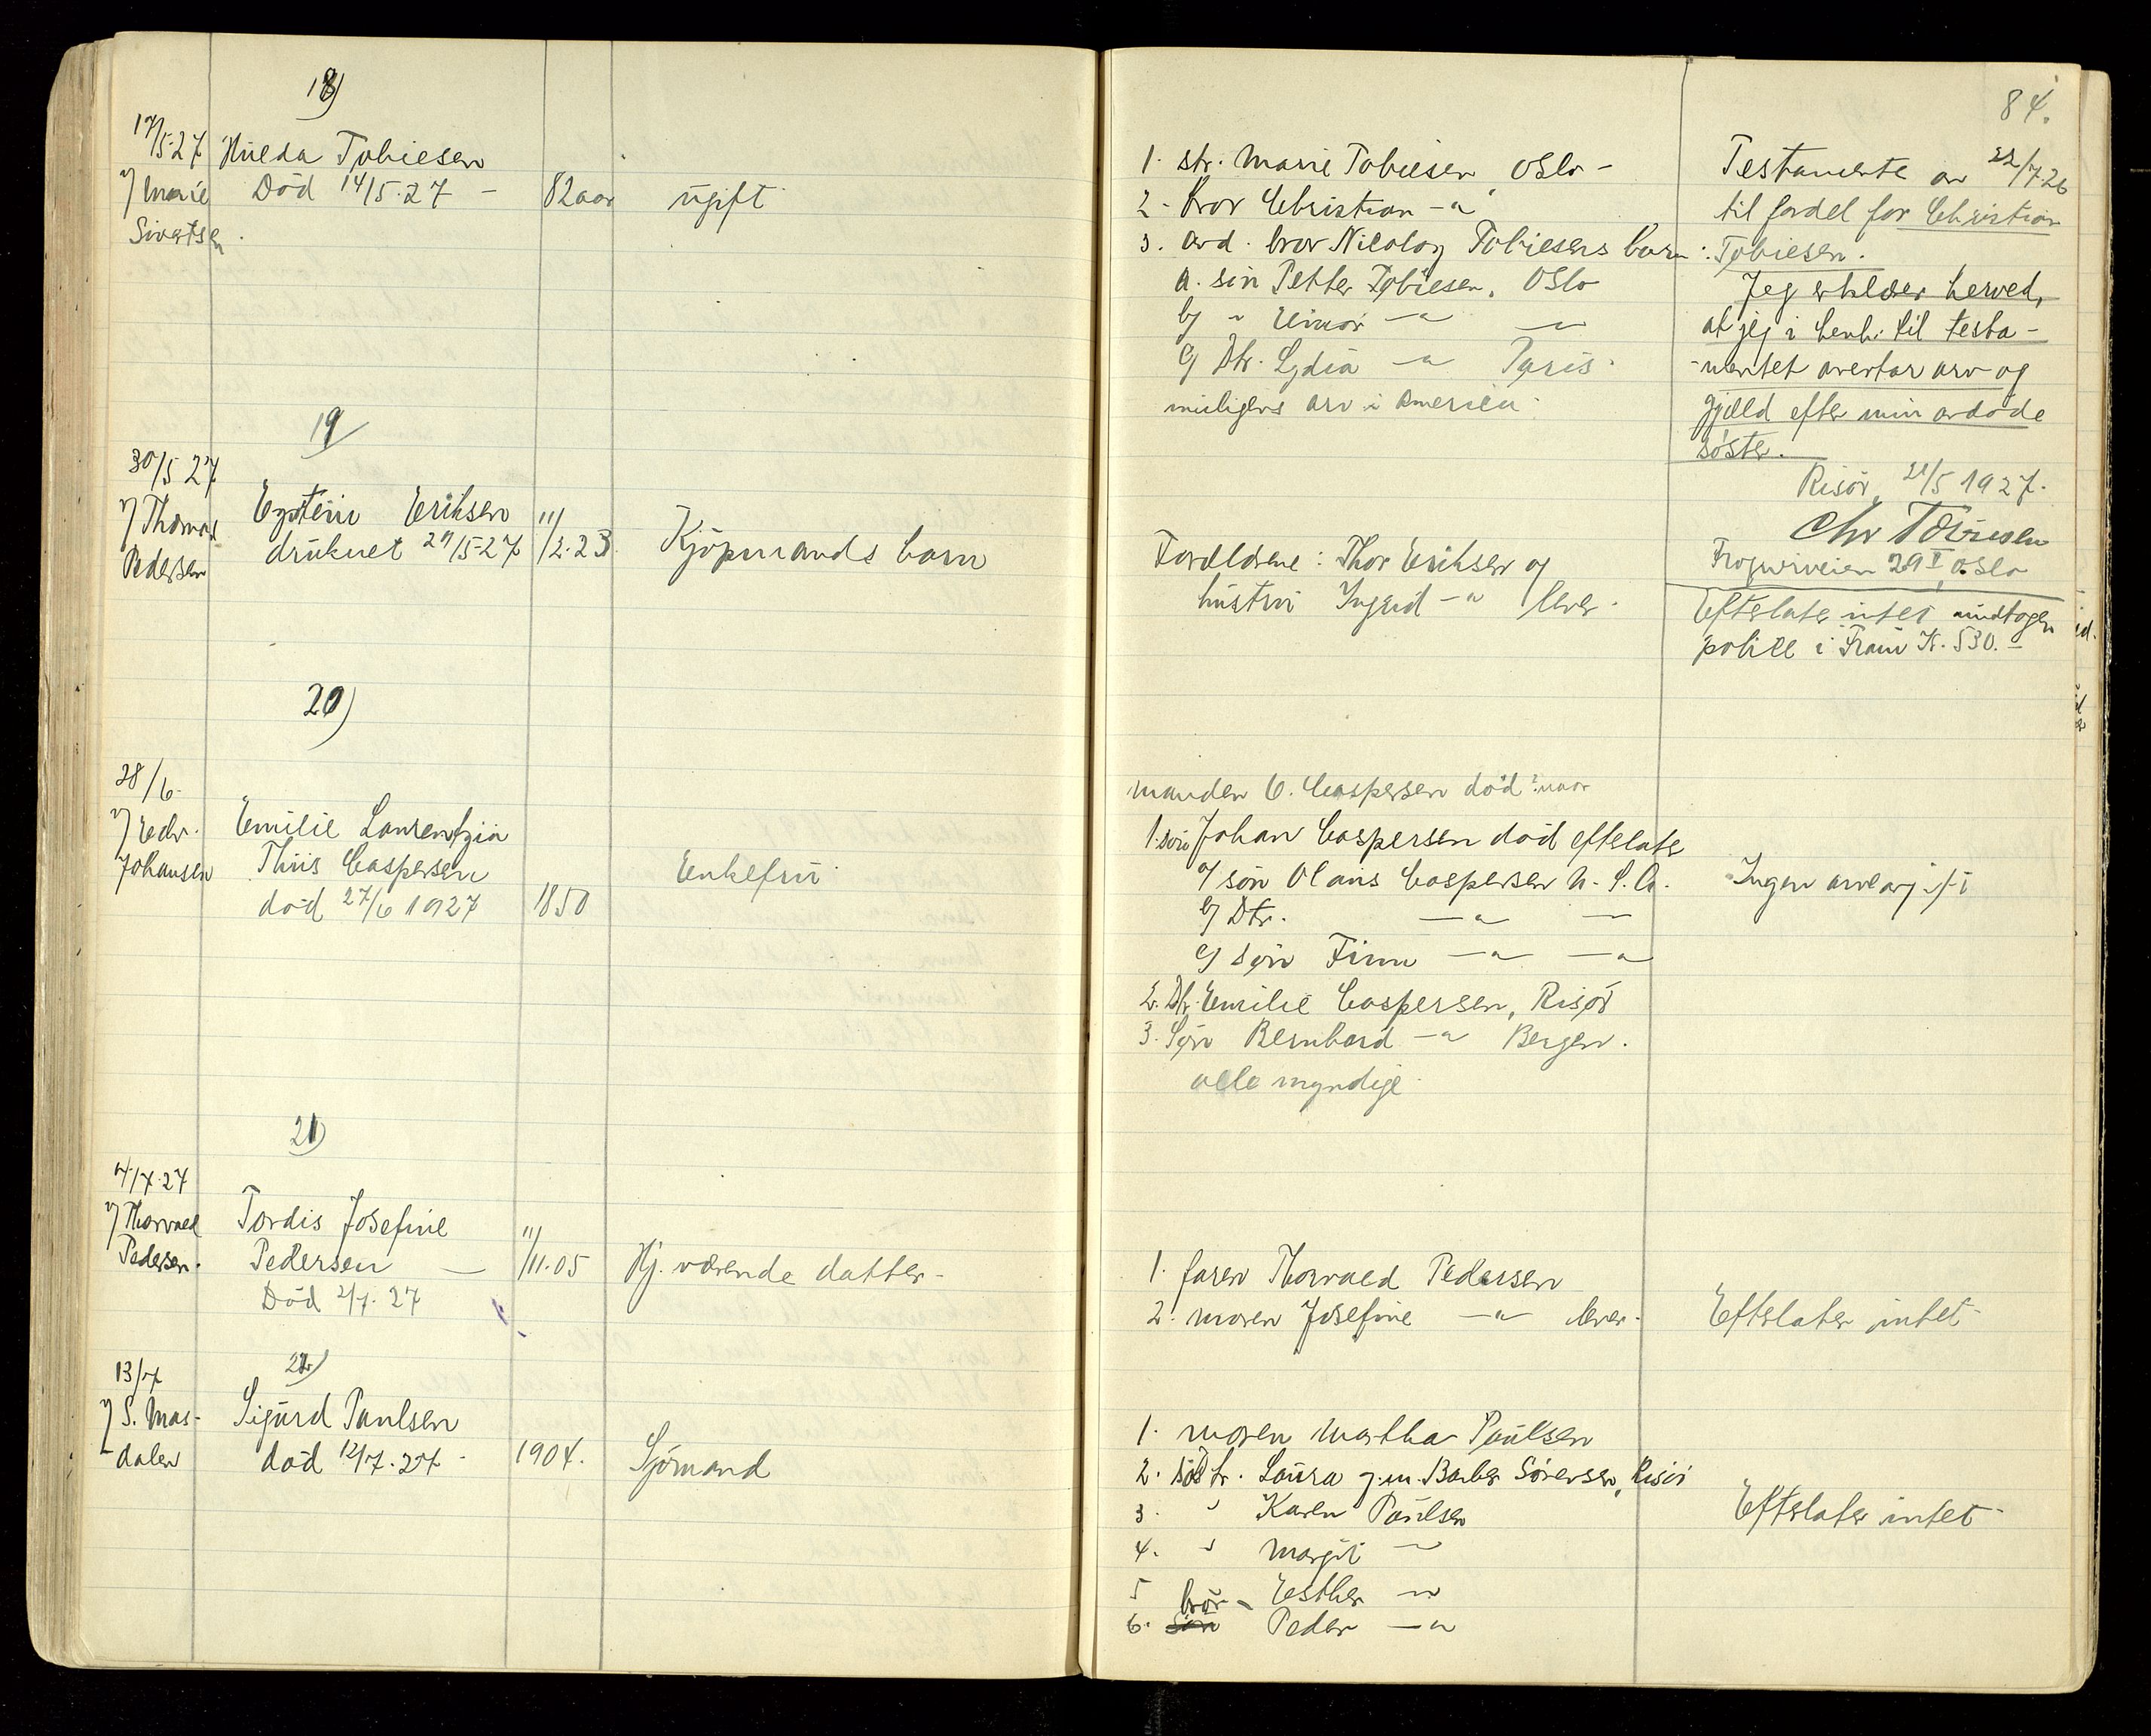 18)
17/5-27
v/ Marie
Sivertsen
Hulda Tobiesen
Död 14/5-27 -
82 aar
ugift
19/
30/5 27
v/ Thorvald
Pedersen
Eystein Eriksen
druknet 29/5-27
11/2-23.
Kjöpmands barn
20)
28/6-
v/ Edv.
Johansen
Emilie Laurentzia
Thiis Caspersen
död 27/6 1927
1850
Enkefru
21)
4/7-27
v/ Thorvald
Pedersen.
Tordis Josefine
Pedersen —
Död 2/7. 27
11/11.05
Hj. værende datter -
22)
13/7
v/ S. Mas-
-dalen
Sigurd Paulsen
död 12/7. 27.
1904.
Sjömand
84.
1. str. Marie Tobiesen, Oslo -
2 - bror Christian —"—
3. avd. bror Nicolay Tobiesens barn:
a. sön Petter Tobiesen, Oslo
b/ " Einar —"— —"—
c/ Dtr. Lydia —"— Paris.
muligens arv. i Amerika.
Foreldrene: Thor Eriksen og
hustru Ingrid —"— lever.
manden C. Caspersen död ? naar
1. sön Johan Caspersen död efterlate
a/ sön Olaus Caspersen U. S. A.
b/ Dtr. —"— —
c/ sön Finn —"— —"—
2. Dtr. Emilie Caspersen, Risör
3. Sön Bernhard —"— Bergen.
alle myndige.
1. faren Thorvald Pedersen
2. moren Josefine —"— lever.
1. moren Martha Paulsen
2. Dtr. Laura g. m. Barber Sörensen, Risör
3. " Karen Paulsen
4. " Margit —"—
5 Esther —"—
6. bror - Peder —"—
Testamente av 22/7-26
til fordel for Christian
Tobiesen.
Jeg erklærer herved,
at jeg i henh. til testa-
-mentet overtar arv og
gjæld efter min avdöde
söster.
Risör, 21/5 1927.
Chr Tobiesen
Frognerveien 29 I, Oslo
Efterlater intet undtagen
police i Fram Kr. 530.-
Ingen arveavgift
Efterlater intet
Efterlater intet